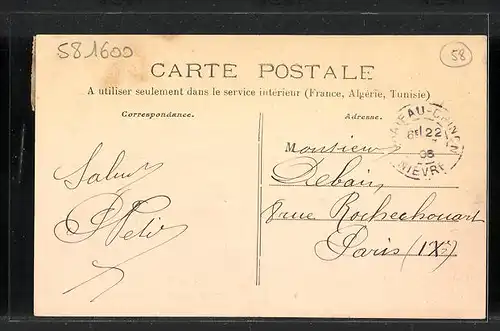 581600
58
CARTE POSTALE
A utiliser seulement dans le service intérieur (France, Algérie, Tunisie)
Correspondance.
Adresse.
CHATEAU-CHINON
6E 22
06
NIEVRE
Salut
Monsieur
Debain
8 rue Rochechouart
Paris (IXe)